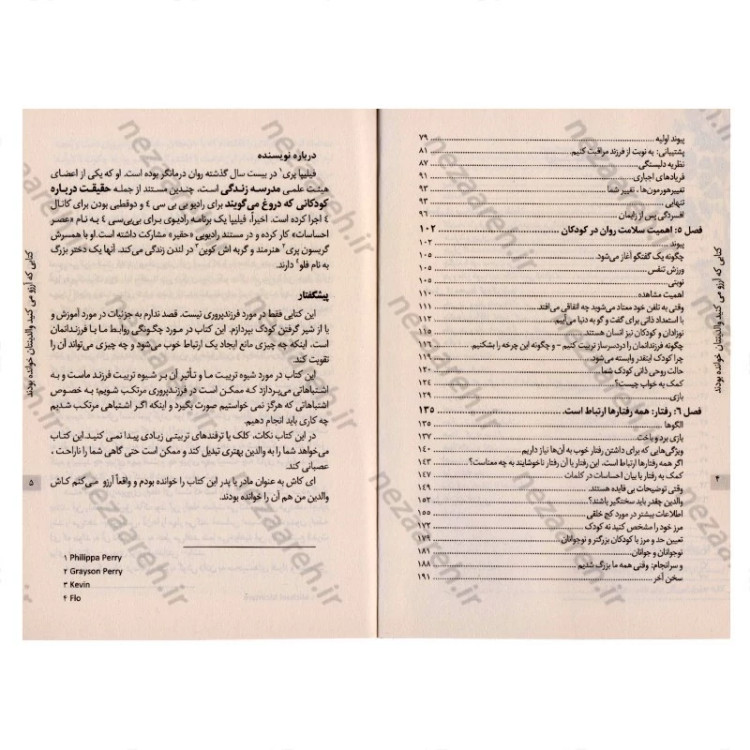 پیوند اولیه ........ ۷۹
پشتیبانی: به نوبت از فرزند مراقبت کنیم ........ ۸۱
نظریه دلبستگی ........ ۸۷
فریادهای اجباری ........ ۹۱
تغییرهورمون‌ها ، تغییر شما ........ ۹۱
تنهایی ........ ۹۳
افسردگی پس از زایمان ........ ۹۶
فصل ۵: اهمیت سلامت روان در کودکان ........ ۱۰۲
پیوند ........ ۱۰۲
چگونه یک گفتگو آغاز می‌شود ........ ۱۰۵
ورزش تنفس ........ ۱۰۵
نوبتی ........ ۱۰۵
اهمیت مشاهده ........ ۱۱۰
وقتی به تلفن خود معتاد می‌شوید چه اتفاقی می‌افتد ........ ۱۱۱
با استعداد ذاتی برای گفت و گو به دنیا می‌آییم ........ ۱۱۳
نوزادان و کودکان نیز انسان هستند ........ ۱۱۵
چگونه فرزندانمان را دردسرساز تربیت کنیم - و چگونه این چرخه را بشکنیم ........ ۱۱۶
چرا کودک اینقدر وابسته می‌شود
حالت روحی ذاتی کودک شما
کمک به خواب چیست؟
بازی ........ ۱۲۹
فصل ۶: رفتار: همه رفتارها ارتباط است. ........ ۱۳۵
الگوها ........ ۱۳۵
بازی برد و باخت ........ ۱۳۷
ویژگی‌هایی که برای داشتن رفتار خوب به آن‌ها نیاز داریم ........ ۱۴۰
اگر همه رفتارها ارتباط است، این رفتار یا آن رفتار ناخوشایند به چه معناست؟ ........ ۱۴۳
کمک به رفتار با بیان احساسات در کلمات ........ ۱۴۷
وقتی توضیحات بی فایده هستند ........ ۱۴۹
والدین چقدر باید سختگیر باشند؟ ........ ۱۵۲
اطلاعات بیشتر در مورد کج خلقی ........ ۱۵۵
مرز خود را مشخص کنید نه کودک ........ ۱۷۳
تعیین حد و مرز با کودکان بزرگتر و نوجوانان ........ ۱۷۹
نوجوانان و جوانان ........ ۱۸۱
و سرانجام: وقتی همه ما بزرگ شدیم ........ ۱۸۸
سخن آخر ........ ۱۹۱
۴
کتابی که آرزو می کنید والدینتان خوانده بودند
درباره نویسنده
فیلیپا پری۱ در بیست سال گذشته روان درمانگر بوده است. او که یکی از اعضای
هیئت علمی مدرسه زندگی است، چندین مستند از جمله حقیقت درباره
کودکانی که دروغ می‌گویند برای رادیو بی بی سی ۴ و دوقطبی بودن برای کانال
۴ اجرا کرده است. اخیراً، فیلیپا یک برنامه رادیوی برای بی‌بی‌سی ۴ به نام «عصر
احساسات» کار کرده و در مستند رادیویی «حقیر» مشارکت داشته است. او با همسرش
گریسون پری۲ هنرمند و گربه اش کوین۳ در لندن زندگی می‌کند. آنها یک دختر بزرگ
به نام فلو۴ دارند.
پیشگفتار
این کتابی فقط در مورد فرزندپروری نیست. قصد ندارم به جزئیات در مورد آموزش و
یا از شیر گرفتن کودک بپردازم. این کتاب در مورد چگونگی روابط ما با فرزندانمان
است، اینکه چه چیزی مانع ایجاد یک ارتباط خوب می‌شود و چه چیزی می‌تواند آن را
تقویت کند.
این کتاب در مورد شیوه تربیت ما و تأثیر آن بر شیوه تربیت فرزند ماست و به
اشتباهاتی می‌پردازد که ممکن است در فرزندپروری مرتکب شویم؛ به خصوص
اشتباهاتی که هرگز نمی خواستیم صورت بگیرد و اینکه اگر اشتباهی مرتکب شدیم
چه کاری باید انجام دهیم.
در این کتاب نکات، کلک یا ترفندهای تربیتی زیادی پیدا نمی کنید.این کتاب
می‌خواهد شما را به والدین بهتری تبدیل کند و ممکن است حتی گاهی شما را ناراحت ،
عصبانی کند.
ای کاش به عنوان مادر یا پدر این کتاب را خوانده بودم و واقعاً آرزو می‌کنم کاش
والدین من هم آن را خوانده بودند.
۱ Philippa Perry
۲ Grayson Perry
۳ Kevin
۴ Flo
۵
کتابی که آرزو می کنید والدینتان خوانده بودند
nezaareh.ir